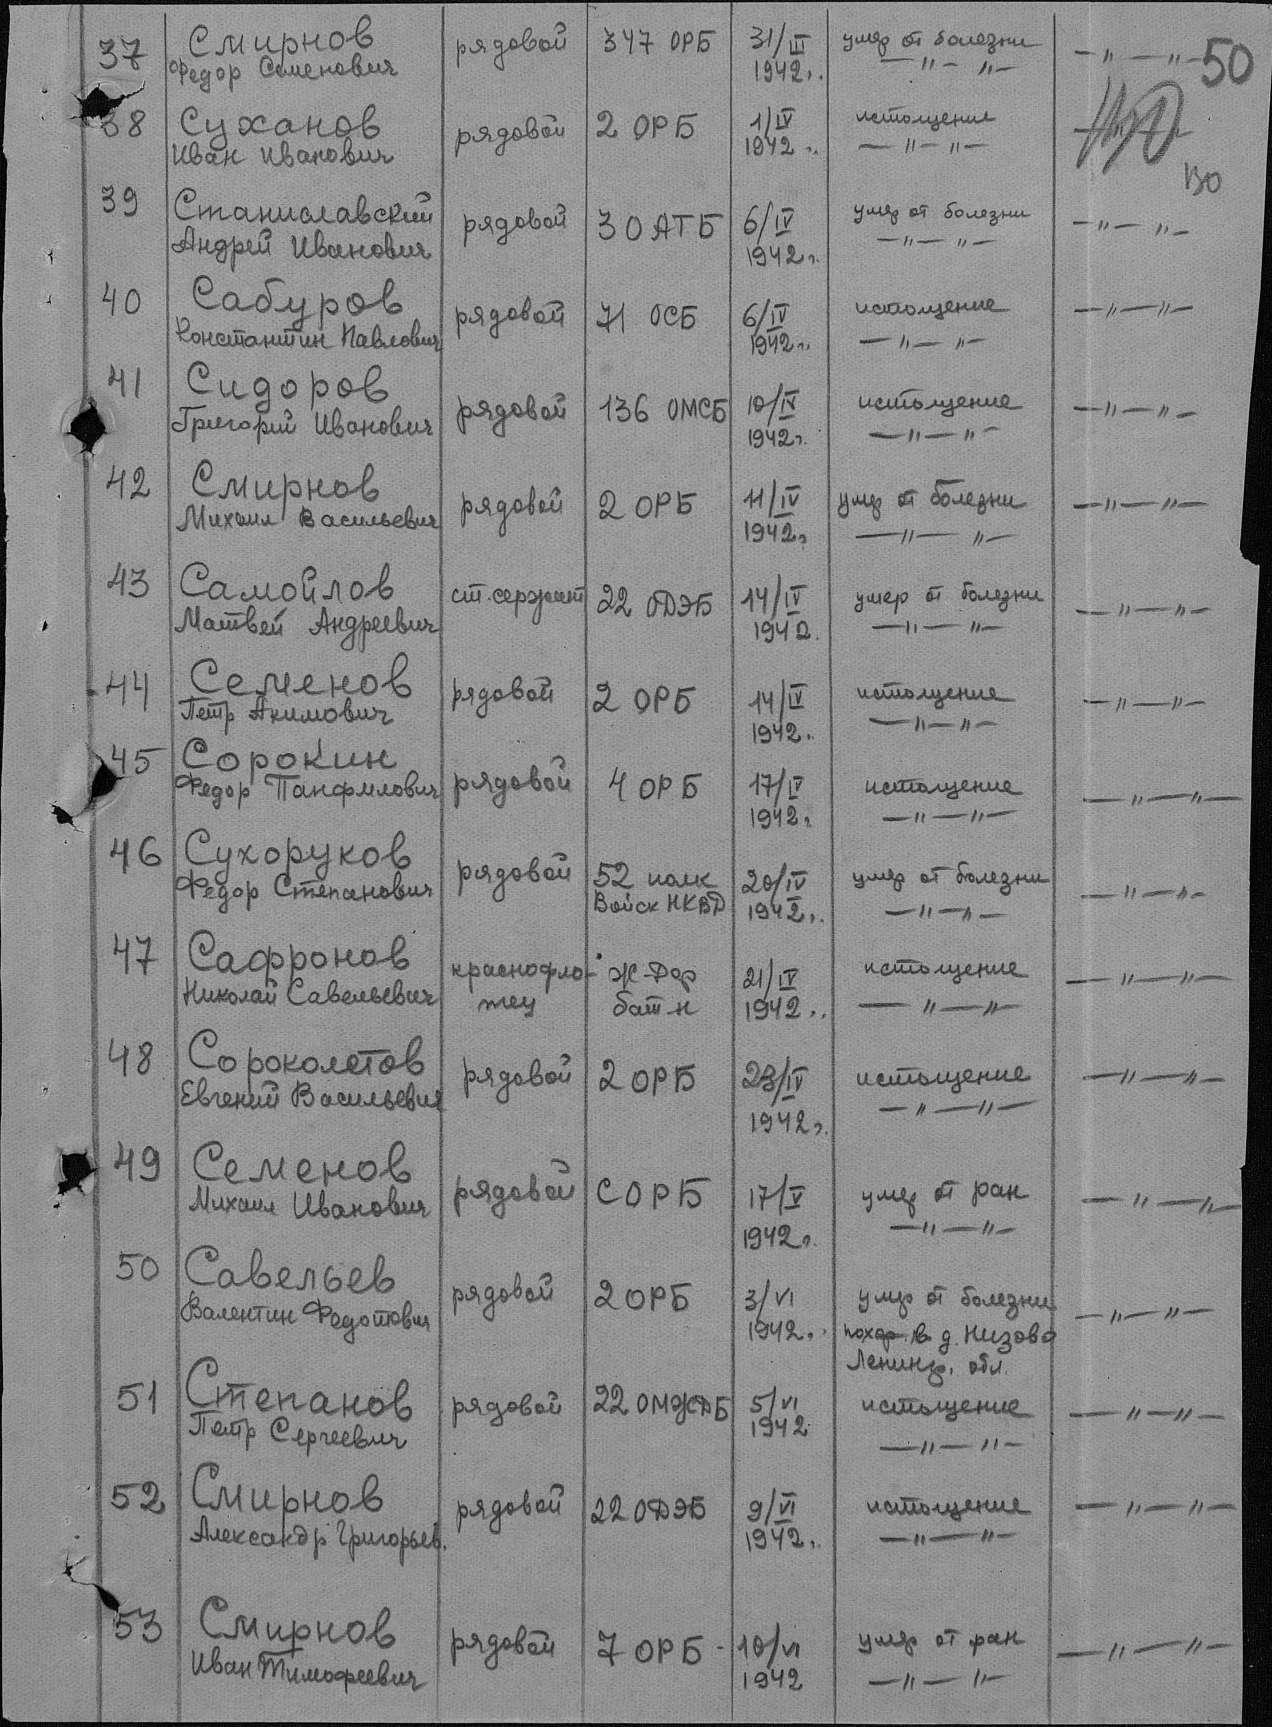 37 Смирнов рядовой 347 ОРБ 31/III умер от болезни — " — " — 50
Федор Семенович 1942г. — " — " —
38 Суханов рядовой 2 ОРБ 1/IV истощение
Иван Иванович 1942г. — " — " — 130
39 Станиславский рядовой 30 АТБ 6/IV умер от болезни — " — " —
Андрей Иванович 1942г. — " — " —
40 Сабуров рядовой 71 ОСБ 6/IV истощение — " — " —
Константин Павлович 1942г. — " — " —
41 Сидоров рядовой 136 ОМСБ 10/IV истощение — " — " —
Григорий Иванович 1942г. — " — " —
42 Смирнов рядовой 2 ОРБ 11/IV умер от болезни — " — " —
Михаил Васильевич 1942г. — " — " —
43 Самойлов ст. сержант 22 ОДЭБ 14/IV умер от болезни — " — " —
Матвей Андреевич 1942. — " — " —
44 Семенов рядовой 2 ОРБ 14/IV истощение — " — " —
Петр Акимович 1942г. — " — " —
45 Сорокин рядовой 4 ОРБ 17/IV истощение — " — " —
Федор Панфилович 1942г. — " — " —
46 Сухоруков рядовой 52 полк 20/IV умер от болезни — " — " —
Федор Степанович Войск НКВД 1942г. — " — " —
47 Сафронов краснофло- Ж-Дор 21/IV истощение — " — " —
Николай Савельевич тец бат-н 1942г. — " — " —
48 Сороколетов рядовой 2 ОРБ 23/IV истощение — " — " —
Евгений Васильевич 1942г. — " — " —
49 Семенов рядовой СОРБ 17/V умер от ран — " — " —
Михаил Иванович 1942г. — " — " —
50 Савельев рядовой 2 ОРБ 3/VI умер от болезни — " — " —
Валентин Федотович 1942г. похор. в д. Низово
Ленингр. обл.
51 Степанов рядовой 22 ОМЖДБ 5/VI истощение — " — " —
Петр Сергеевич 1942 — " — " —
52 Смирнов рядовой 22 ОДЭБ 9/VI истощение — " — " —
Александр Григорьев. 1942г. — " — " —
53 Смирнов рядовой 7 ОРБ - 10/VI умер от ран — " — " —
Иван Тимофеевич 1942 — " — " —